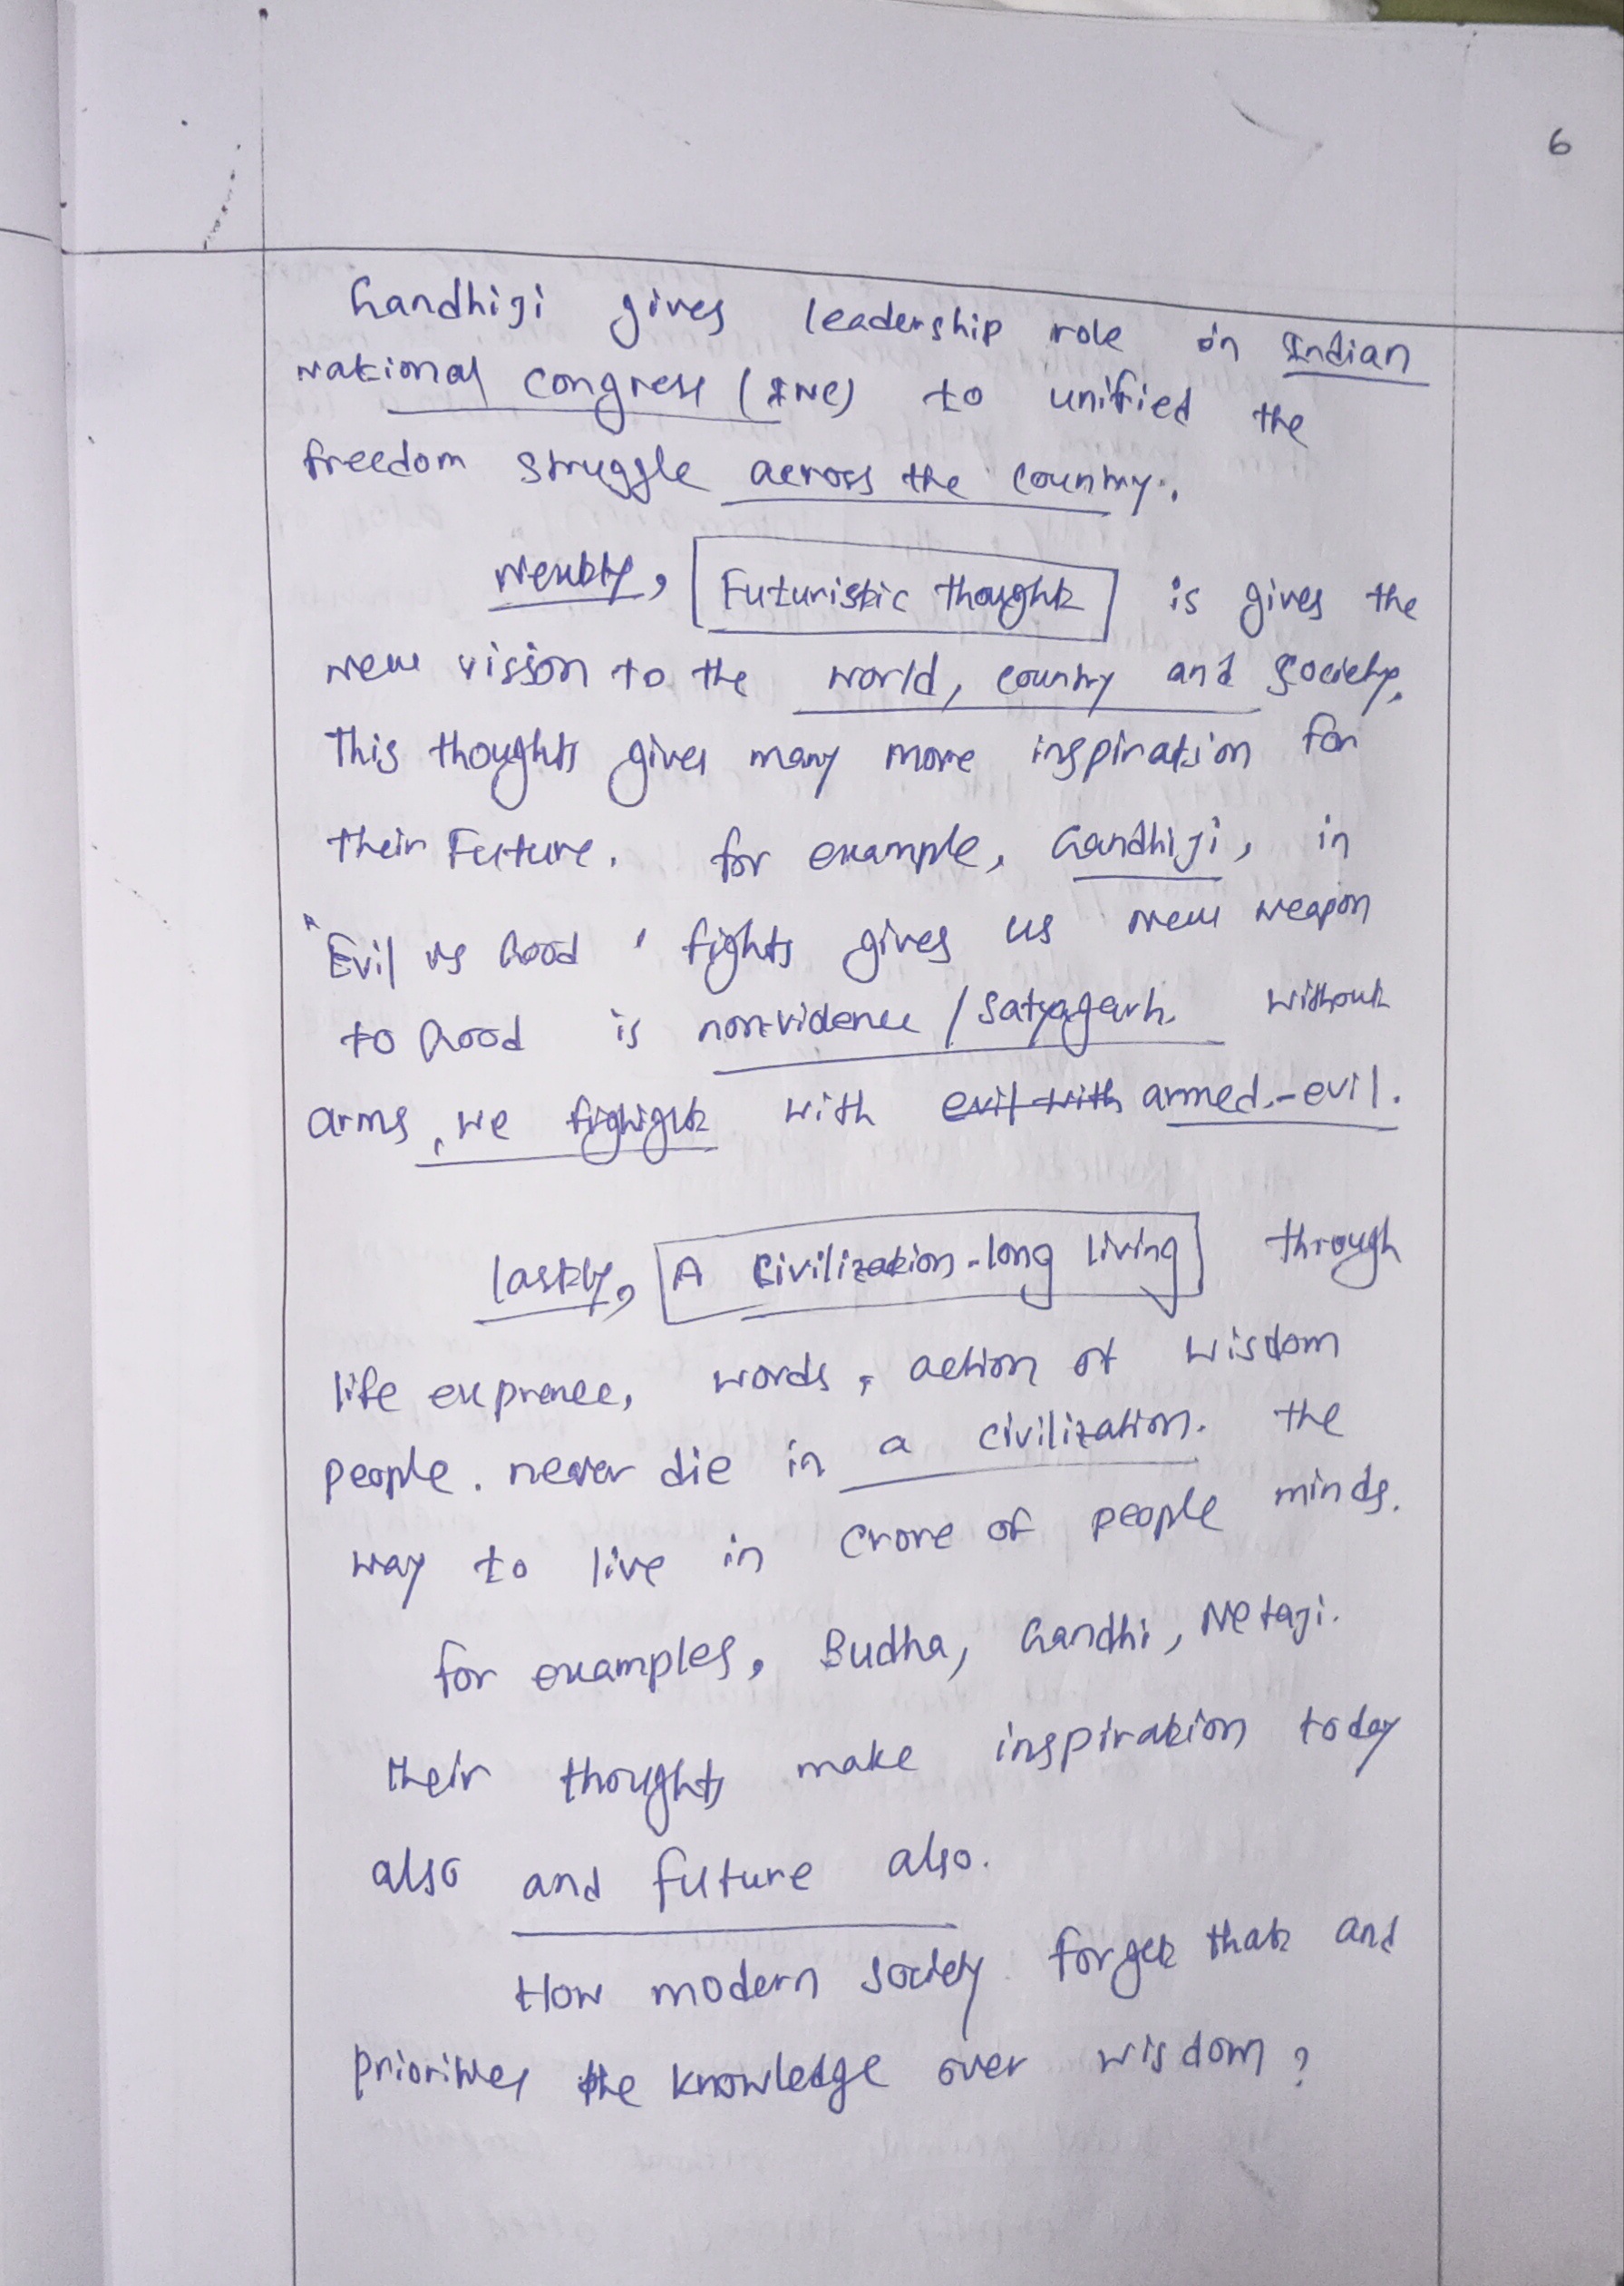 6
Gandhiji gives leadership role in Indian
National Congress (INC) to unified the
freedom struggle across the country.
Nextly, Futuristic thought is gives the
new vision to the world, country and society.
This thoughts gives many more inspiration for
their Future. for example, Gandhiji, in
"Evil vs Good' fights gives us new weapon
to Good is non-vidence / Satyagarh. without
arms, we with evil with armed-evil.
lastly, A Civilization-long living through
life exprence, words, action of wisdom
people. never die in a civilization. the
way to live in crore of people minds.
for examples, Budha, Gandhi, Netaji.
their thoughts make inspiration today
also and future also.
How modern society forget that and
prioritizes the knowledge over wisdom?